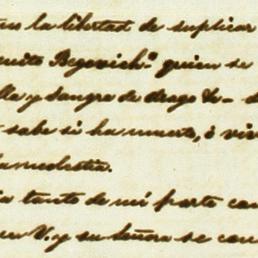 la libertad de suplicar
Begovich. quien se
lla y Sangre de drago &-
sabe si ha muerto, ó viv
la modestia.
ia tanto de mi parte com
V. y su Señora se con